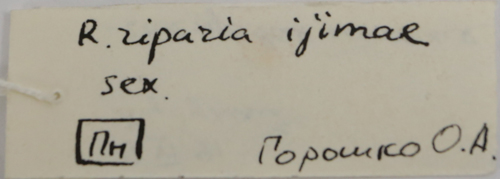 R. riparia ijimae
sex.
Пн Горошко О.А.